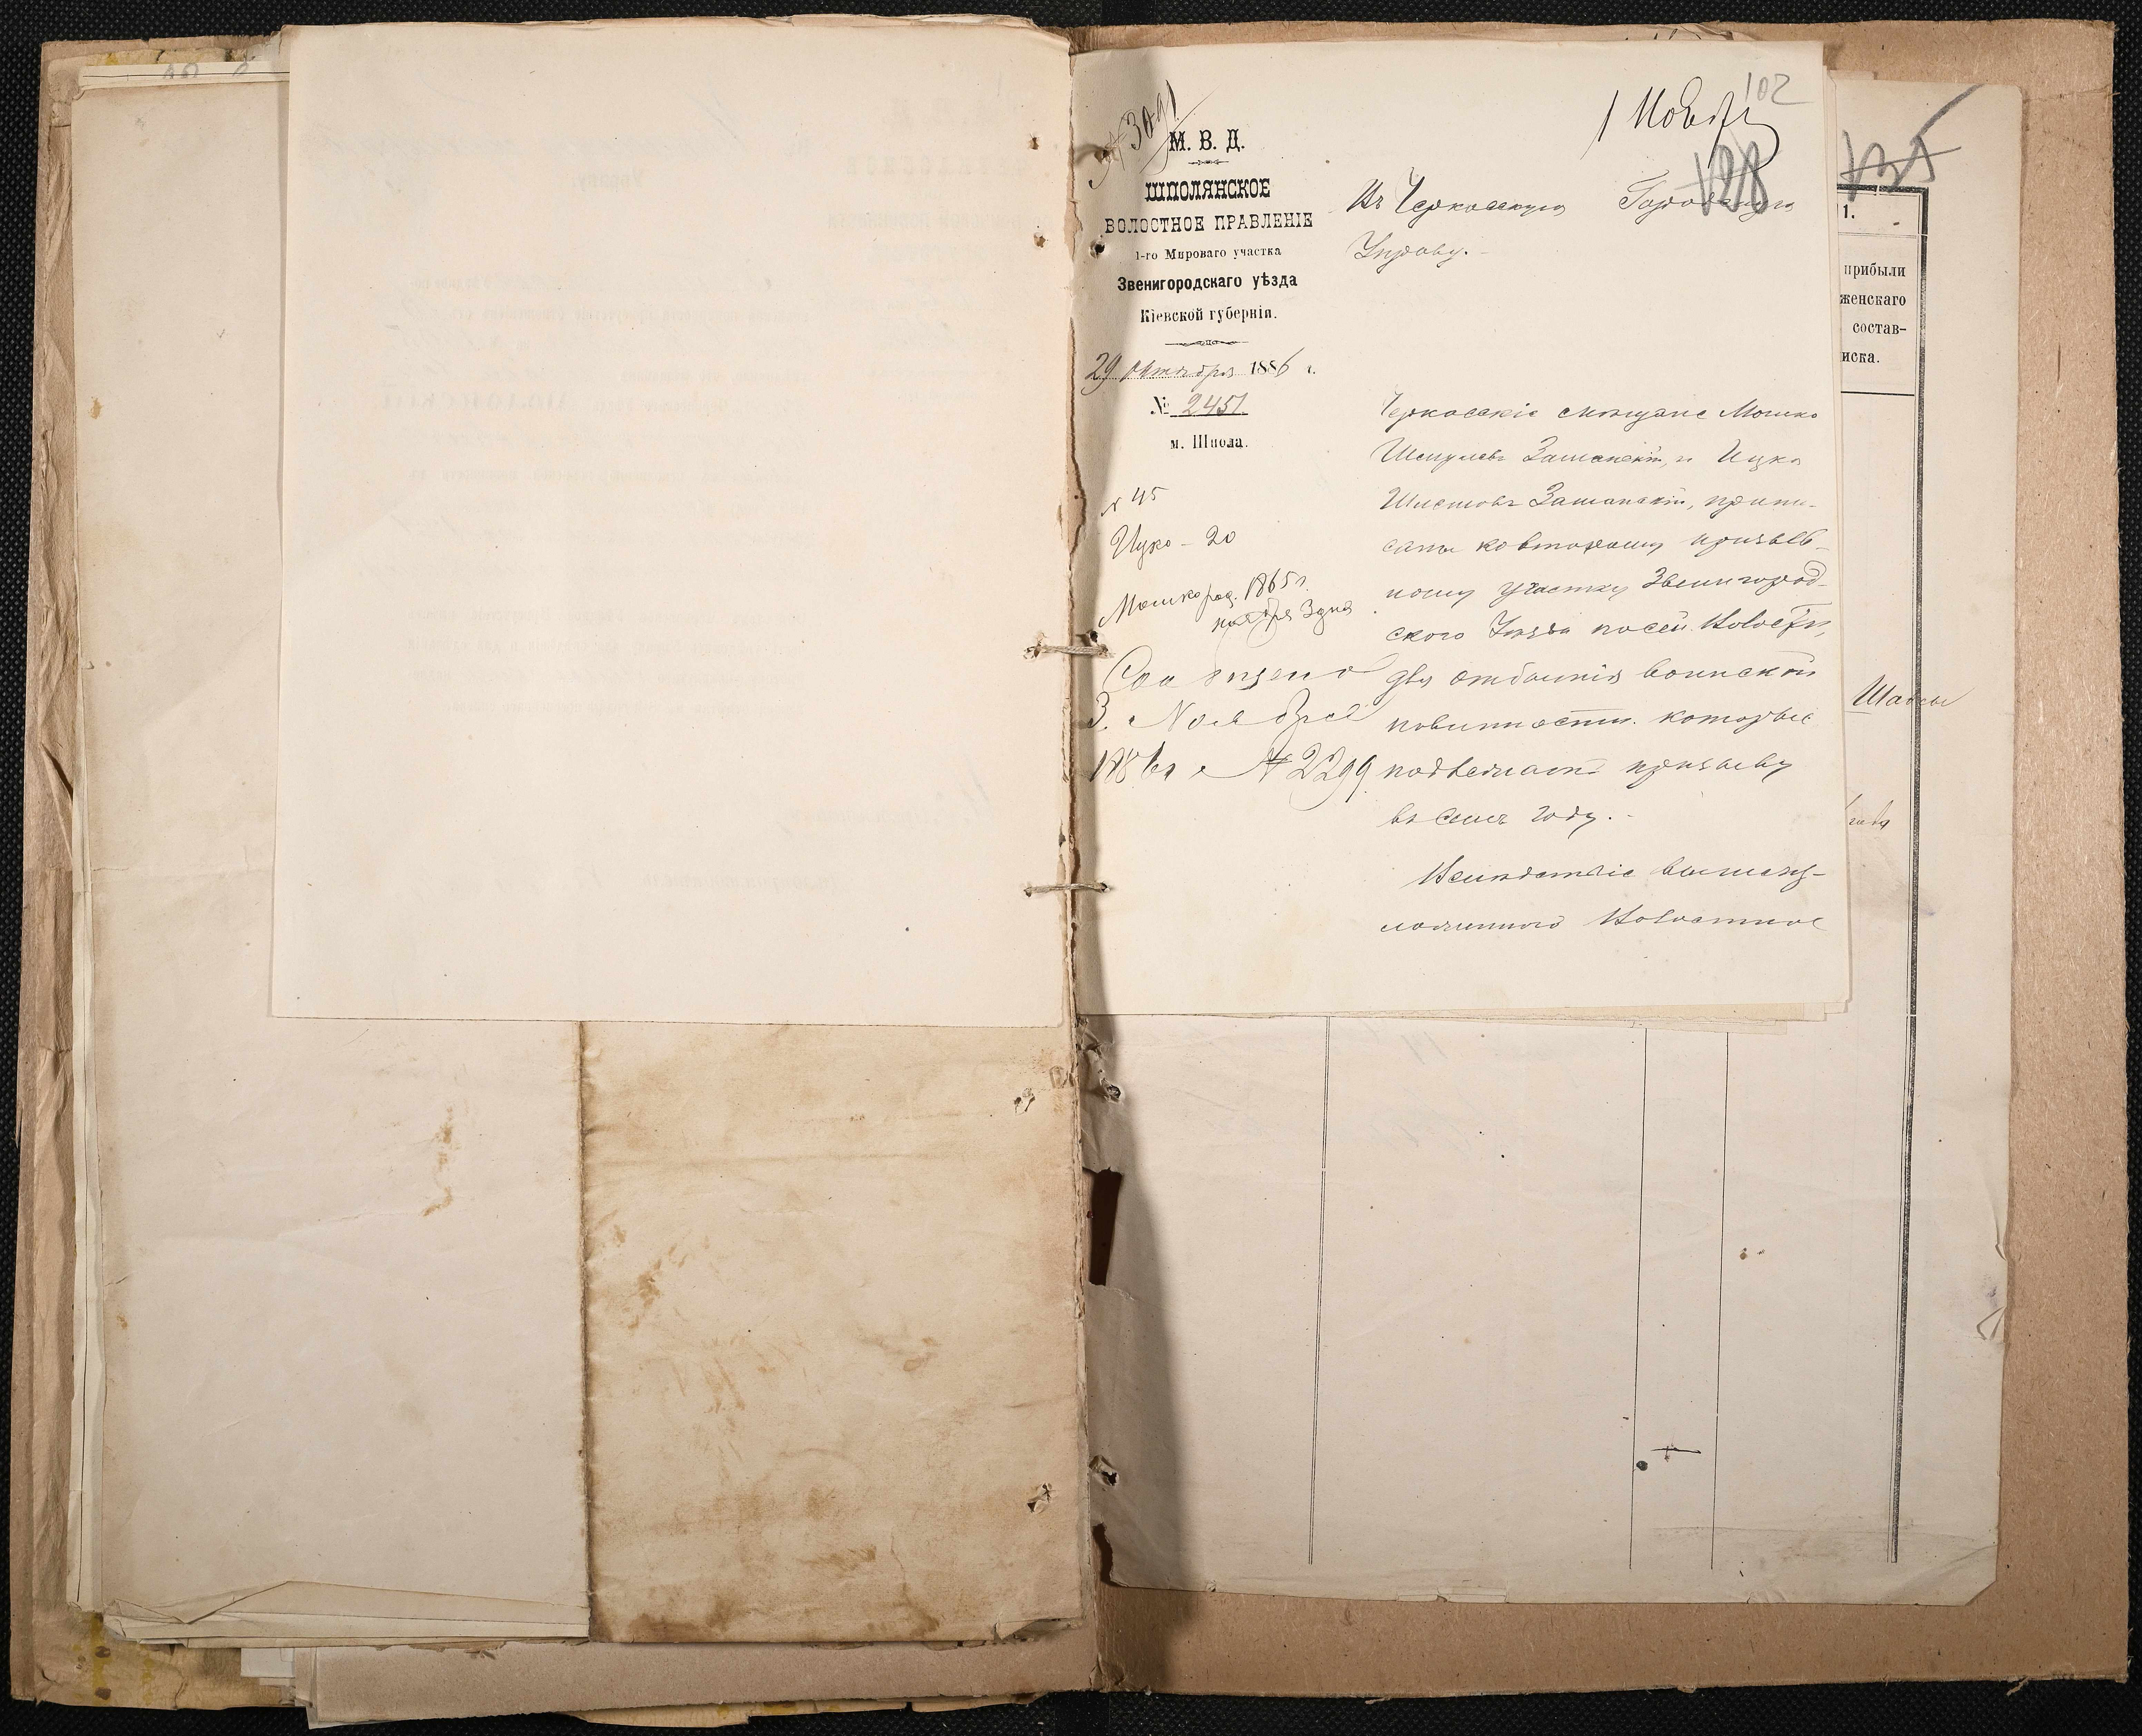 102
1 Ноября
128
№ 3091
М. В. Д.
ШПОЛЯНСКОЕ
ВОЛОСТНОЕ ПРАВЛЕНІЕ
1-го Мироваго участка
Звенигородскаго уѣзда
Кіевской губерніи.
29 Октября 1886 г.
№ 2451
м. Шпола.
№ 45
Ицко - 20
Мошко род. 1865 г.
ноября 3 дня
3. Ноября
1886 г № 2299
Въ Черкасскую Городскую
Управу.
Черкасскіе мѣщане Мошко
Шмулевъ и Ицко
припи-
саны ко второму призыв-
ному участку Звенигород-
ского Уѣзда по сей Волости,
для отбытія воинской
повинности. которые
подлежатъ призыву
въ семъ году.
Вслѣдствіе вышеиз-
ложенного Волостное
135
1.
прибыли
женскаго
состав-
иска.